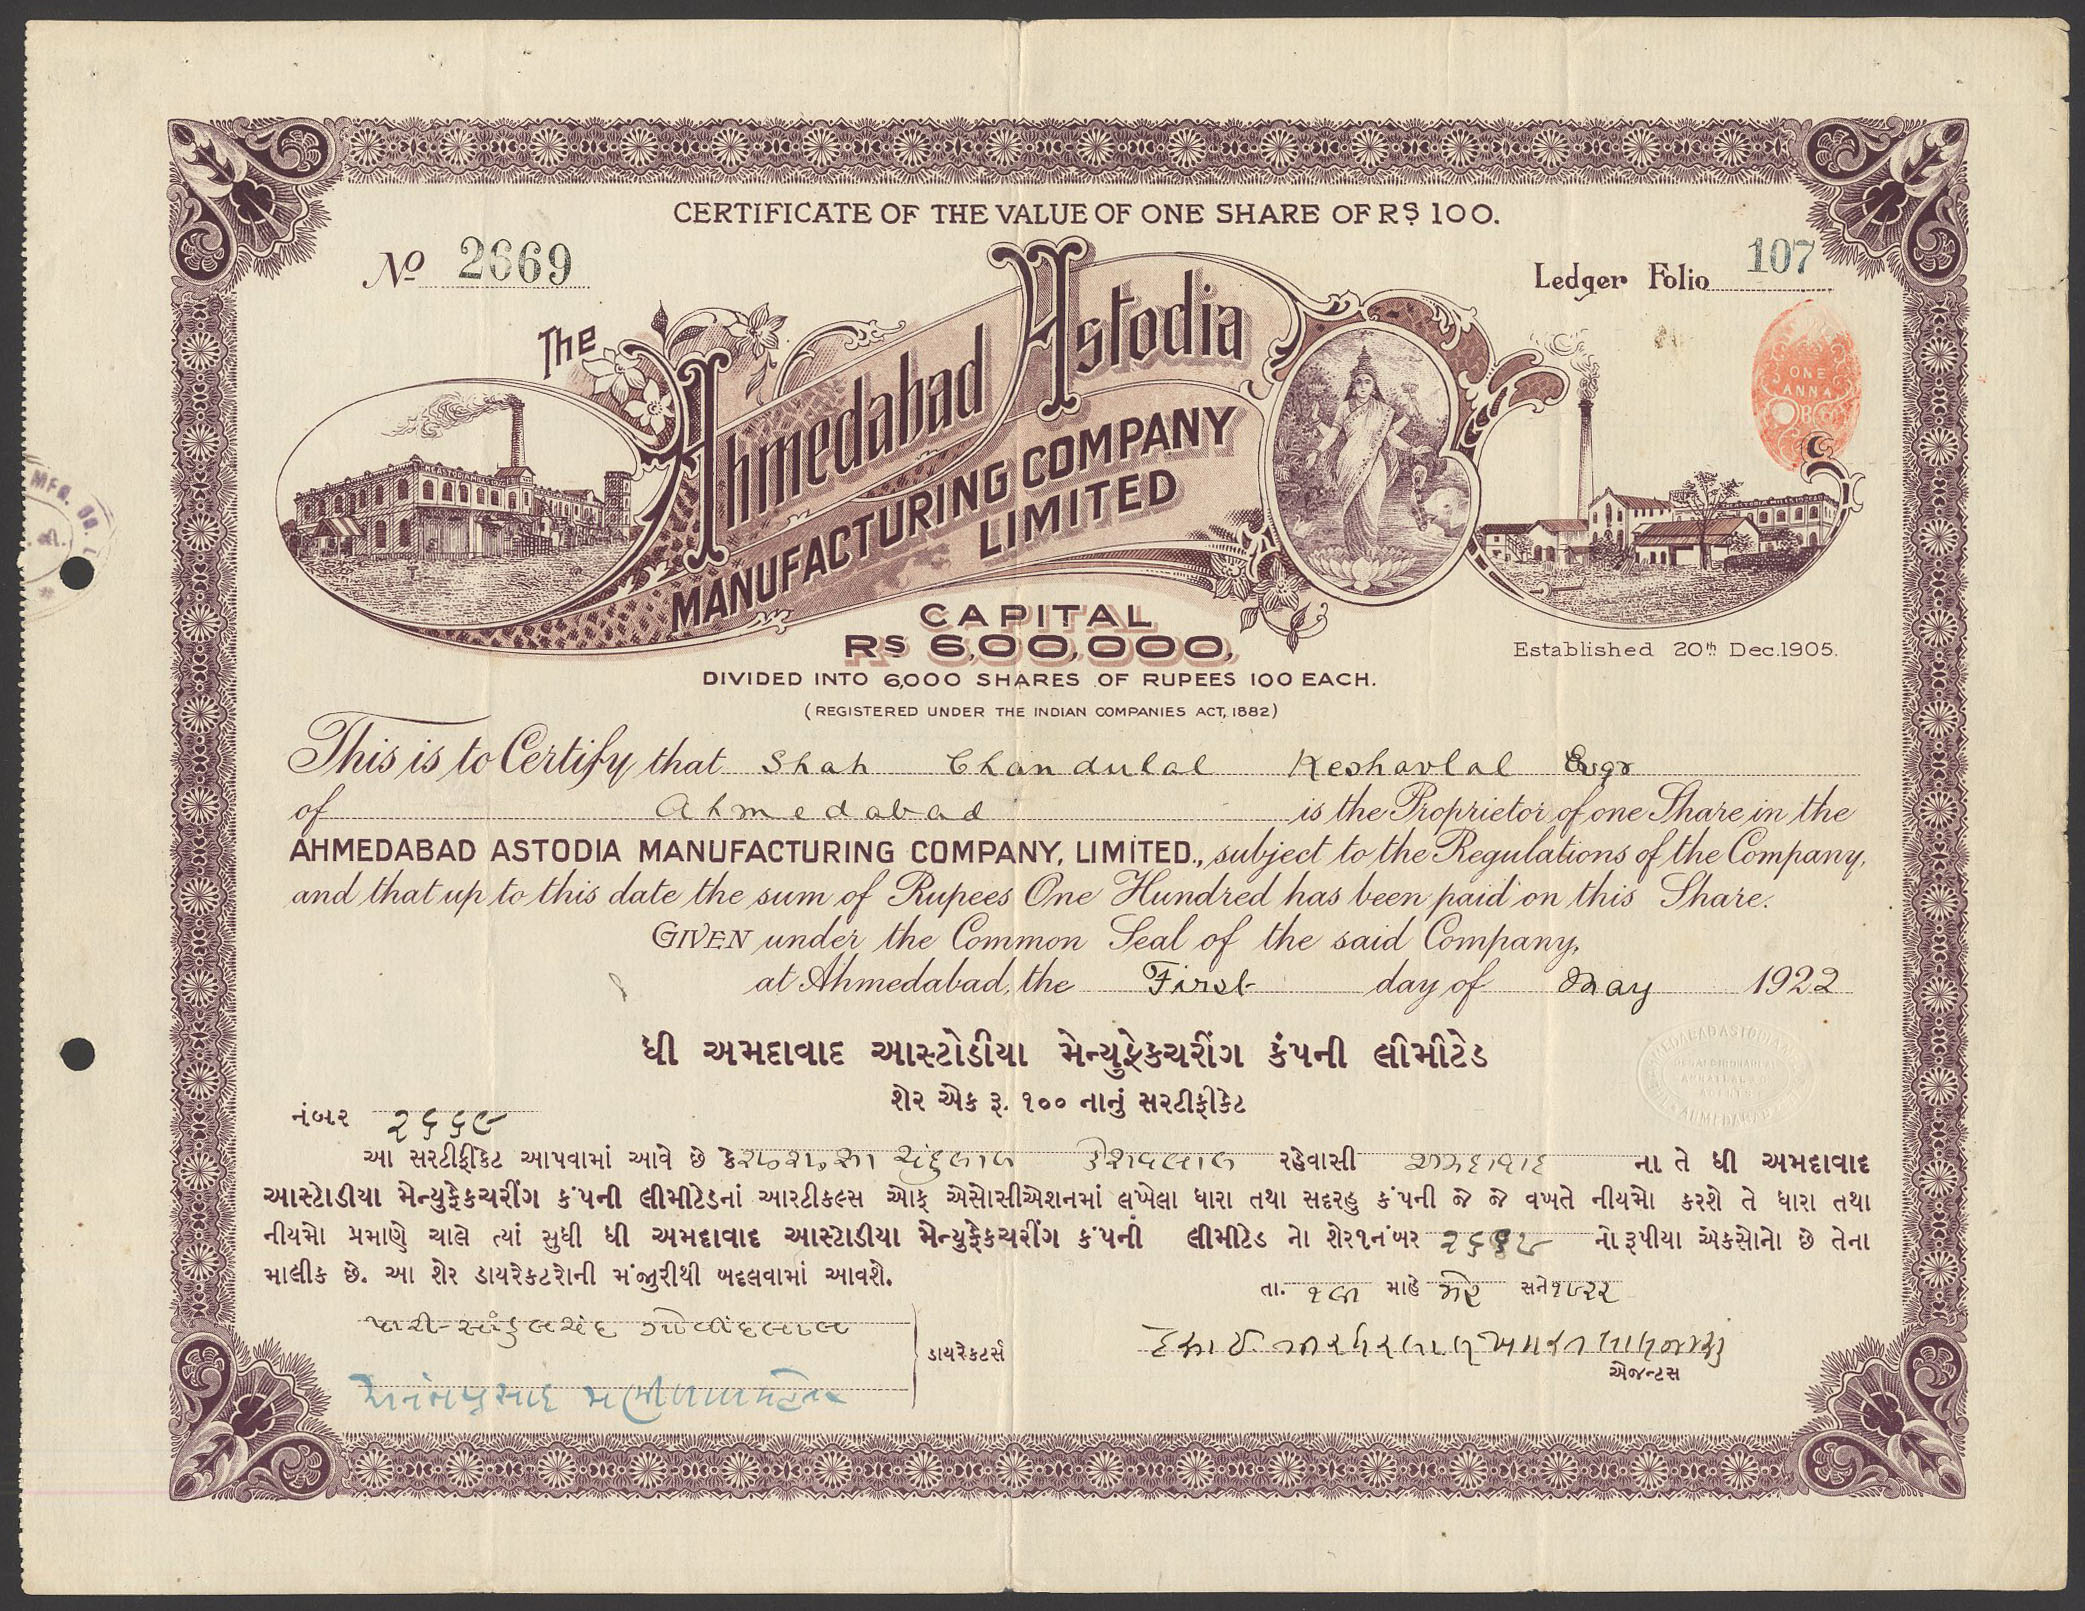 CERTIFICATE OF THE VALUE OF ONE SHARE OF RS 100.
No 2669
Ledger Folio 107
The Ahmedabad Astodia
MANUFACTURING COMPANY
LIMITED
ONE
ANNA
CAPITAL
RS 6,00,000,
Established 20th Dec. 1905.
DIVIDED INTO 6,000 SHARES OF RUPEES 100 EACH.
(REGISTERED UNDER THE INDIAN COMPANIES ACT, 1882)
This is to Certify that Shah Chandulal Keshavlal Esqr
of Ahmedabad is the Proprietor of one Share in the
AHMEDABAD ASTODIA MANUFACTURING COMPANY, LIMITED., subject to the Regulations of the Company,
and that up to this date the sum of Rupees One Hundred has been paid on this Share.
GIVEN under the Common Seal of the said Company,
at Ahmedabad, the First day of May 1922
ધી અમદાવાદ આસ્ટોડીયા મેન્યુફેકચરીંગ કંપની લીમીટેડ
શેર એક રૂ. ૧૦૦ નાનું સરટીફીકેટ
નંબર ૨૬૬૯
આ સરટીફીકેટ આપવામાં આવે છે કે ચંદુલાલ કેશવલાલ રહેવાસી અમદાવાદ ના તે ધી અમદાવાદ
આસ્ટોડીયા મેન્યુફેકચરીંગ કંપની લીમીટેડનાં આરટીકલ્સ ઓફ એસોસીએશનમાં લખેલા ધારા તથા સદરહુ કંપની જે જે વખતે નીયમો કરશે તે ધારા તથા
નીયમો પ્રમાણે ચાલે ત્યાં સુધી ધી અમદાવાદ આસ્ટોડીયા મેન્યુફેકચરીંગ કંપની લીમીટેડ નો શેર૧નંબર ૨૬૬૯ નો રૂપીયા એકસોનો છે તેના
માલીક છે. આ શેર ડાયરેકટરોની મંજુરીથી બદલવામાં આવશે.
તા. ૧લી માહે મે સને૧૯૨૨
ડાયરેકટર્સ
એજન્ટસ